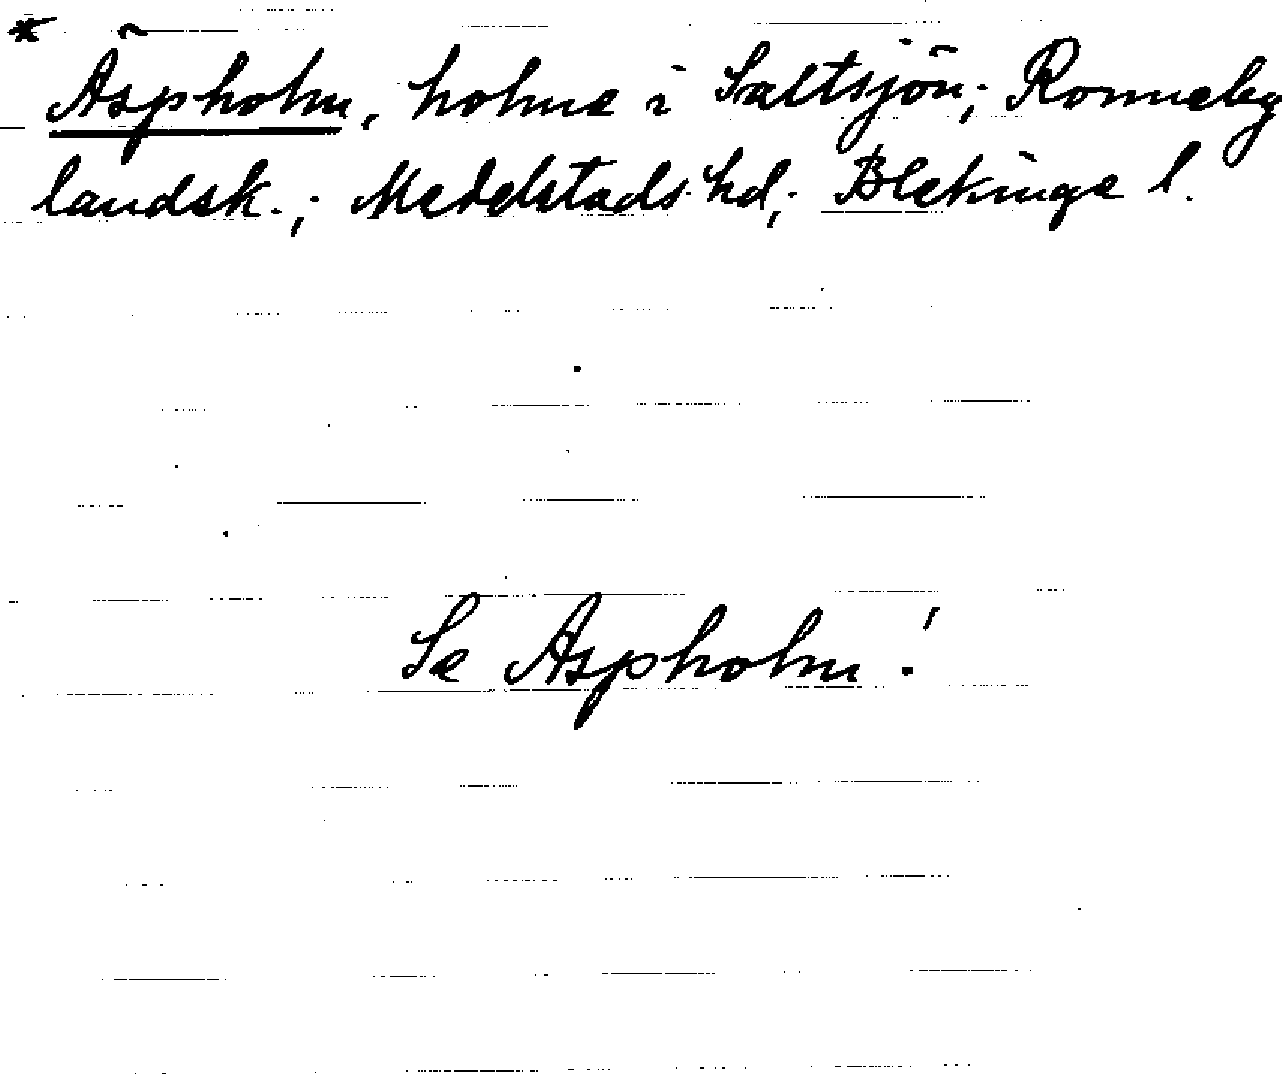 * Äspholm, holme i Saltsjön; Ronneby
landsk.; Medelstads hd; Blekinge l.
Se Aspholm!